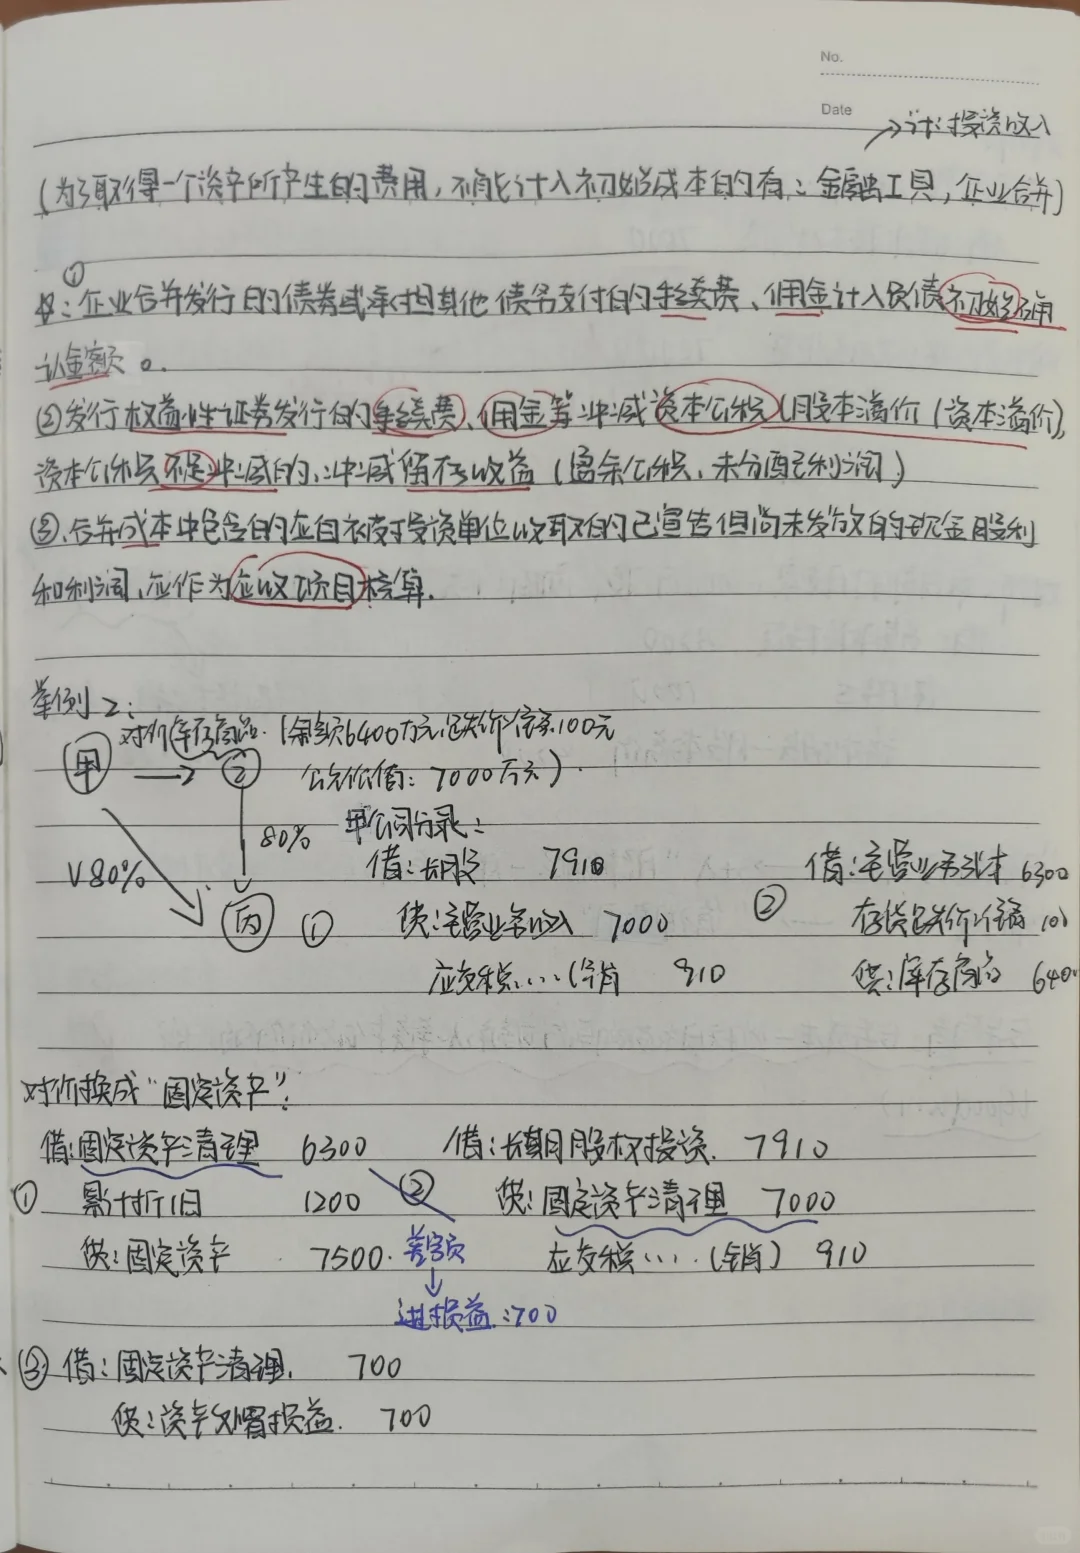 No.
Date
→计:投资收入
(为了取得一个资产所产生的费用,不能计入初始成本的有:金融工具,企业合并)
①
企业合并发行的债券或承担其他债务支付的手续费、佣金计入负债初始确
认金额。
②发行权益性证券发行的手续费、佣金等冲减资本公积(股本溢价(资本溢价),
资本公积不足冲减的,冲减留存收益(盈余公积、未分配利润)
③、合并成本中包含的应自被投资单位收取的已宣告但尚未发放的现金股利
和利润,应作为应收项目核算.
举例2:
对价库存商品.(余额6400万元,跌价准备100元
甲 → 乙 公允价值:7000万元).
80% 甲公司分录:
V80% 借:长股 7910 借:主营业务成本 6300
丙 ① 贷:主营业务收入 7000 ② 存货跌价准备 100
应交税....(销 910 贷:库存商品 640
对价换成“固定资产”:
借:固定资产清理 6300 借:长期股权投资. 7910
① 累计折旧 1200 ② 贷:固定资产清理 7000
贷:固定资产 7500. 差额 应交税.....(销) 910
↓
进损益:700
③ 借:固定资产清理. 700
贷:资产处置损益. 700